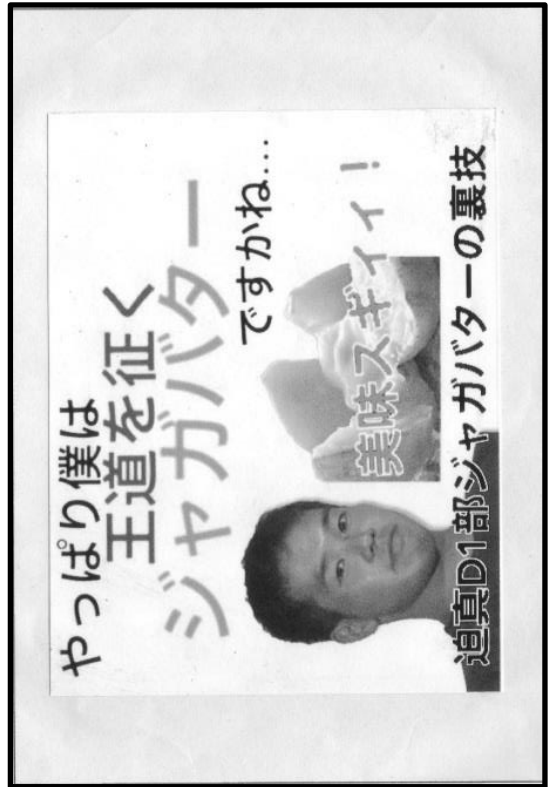 やっぱり僕は
王道を征く
ジャガバター
ですかね…
美味スギィィ!
迫真D1部ジャガバターの裏技